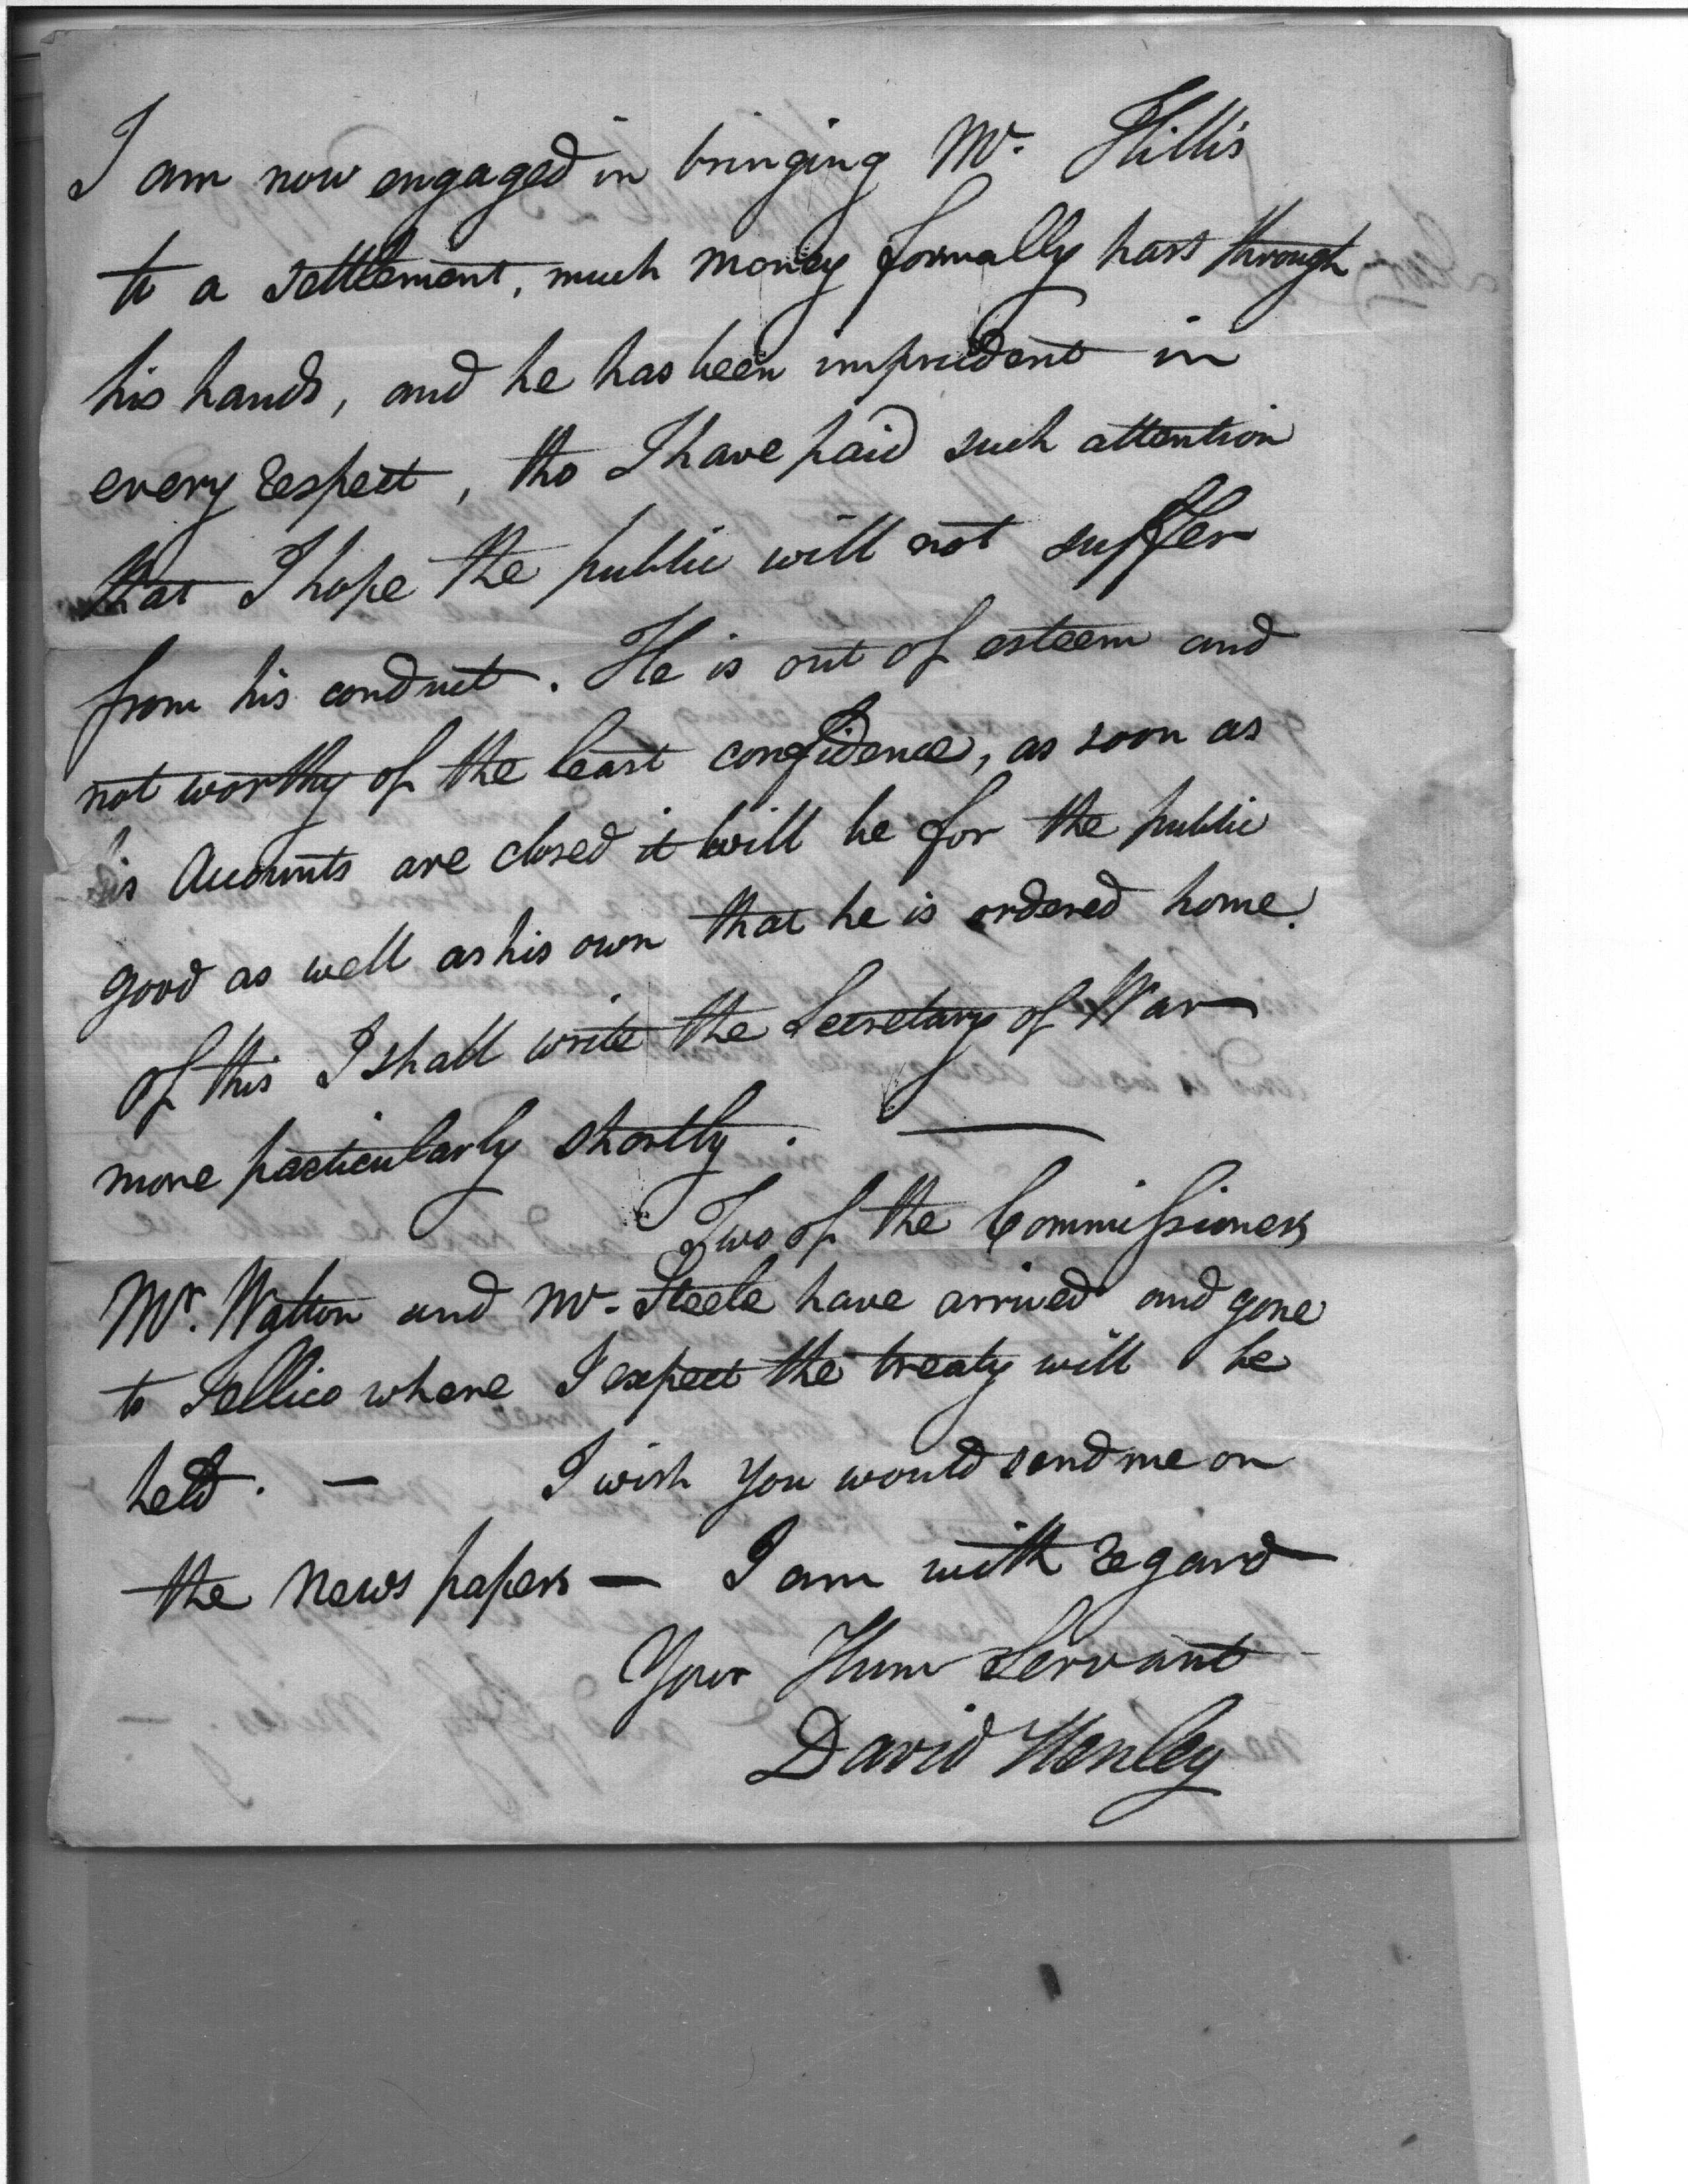 I am now engaged in bringing Mr. Hillis
to a settlement, much money formally past through
his hands, and he has been imprudent in
every respect, tho I have paid such attention
that I hope the public will not suffer
from his conduct. He is out of esteem and
not worthy of the least confidence, as soon as
his Accounts are closed it will be for the public
good as well as his own that he is ordered home.
of this I shall write the Secretary of War
more particularly shortly. —
Two of the Commissioners
Mr. Walton and Mr. Steele have arrived and gone
to Tellico where I expect the treaty will be
held. — I wish you would send me on
the News papers — I am with regard
Your Hum Servant
David Henley